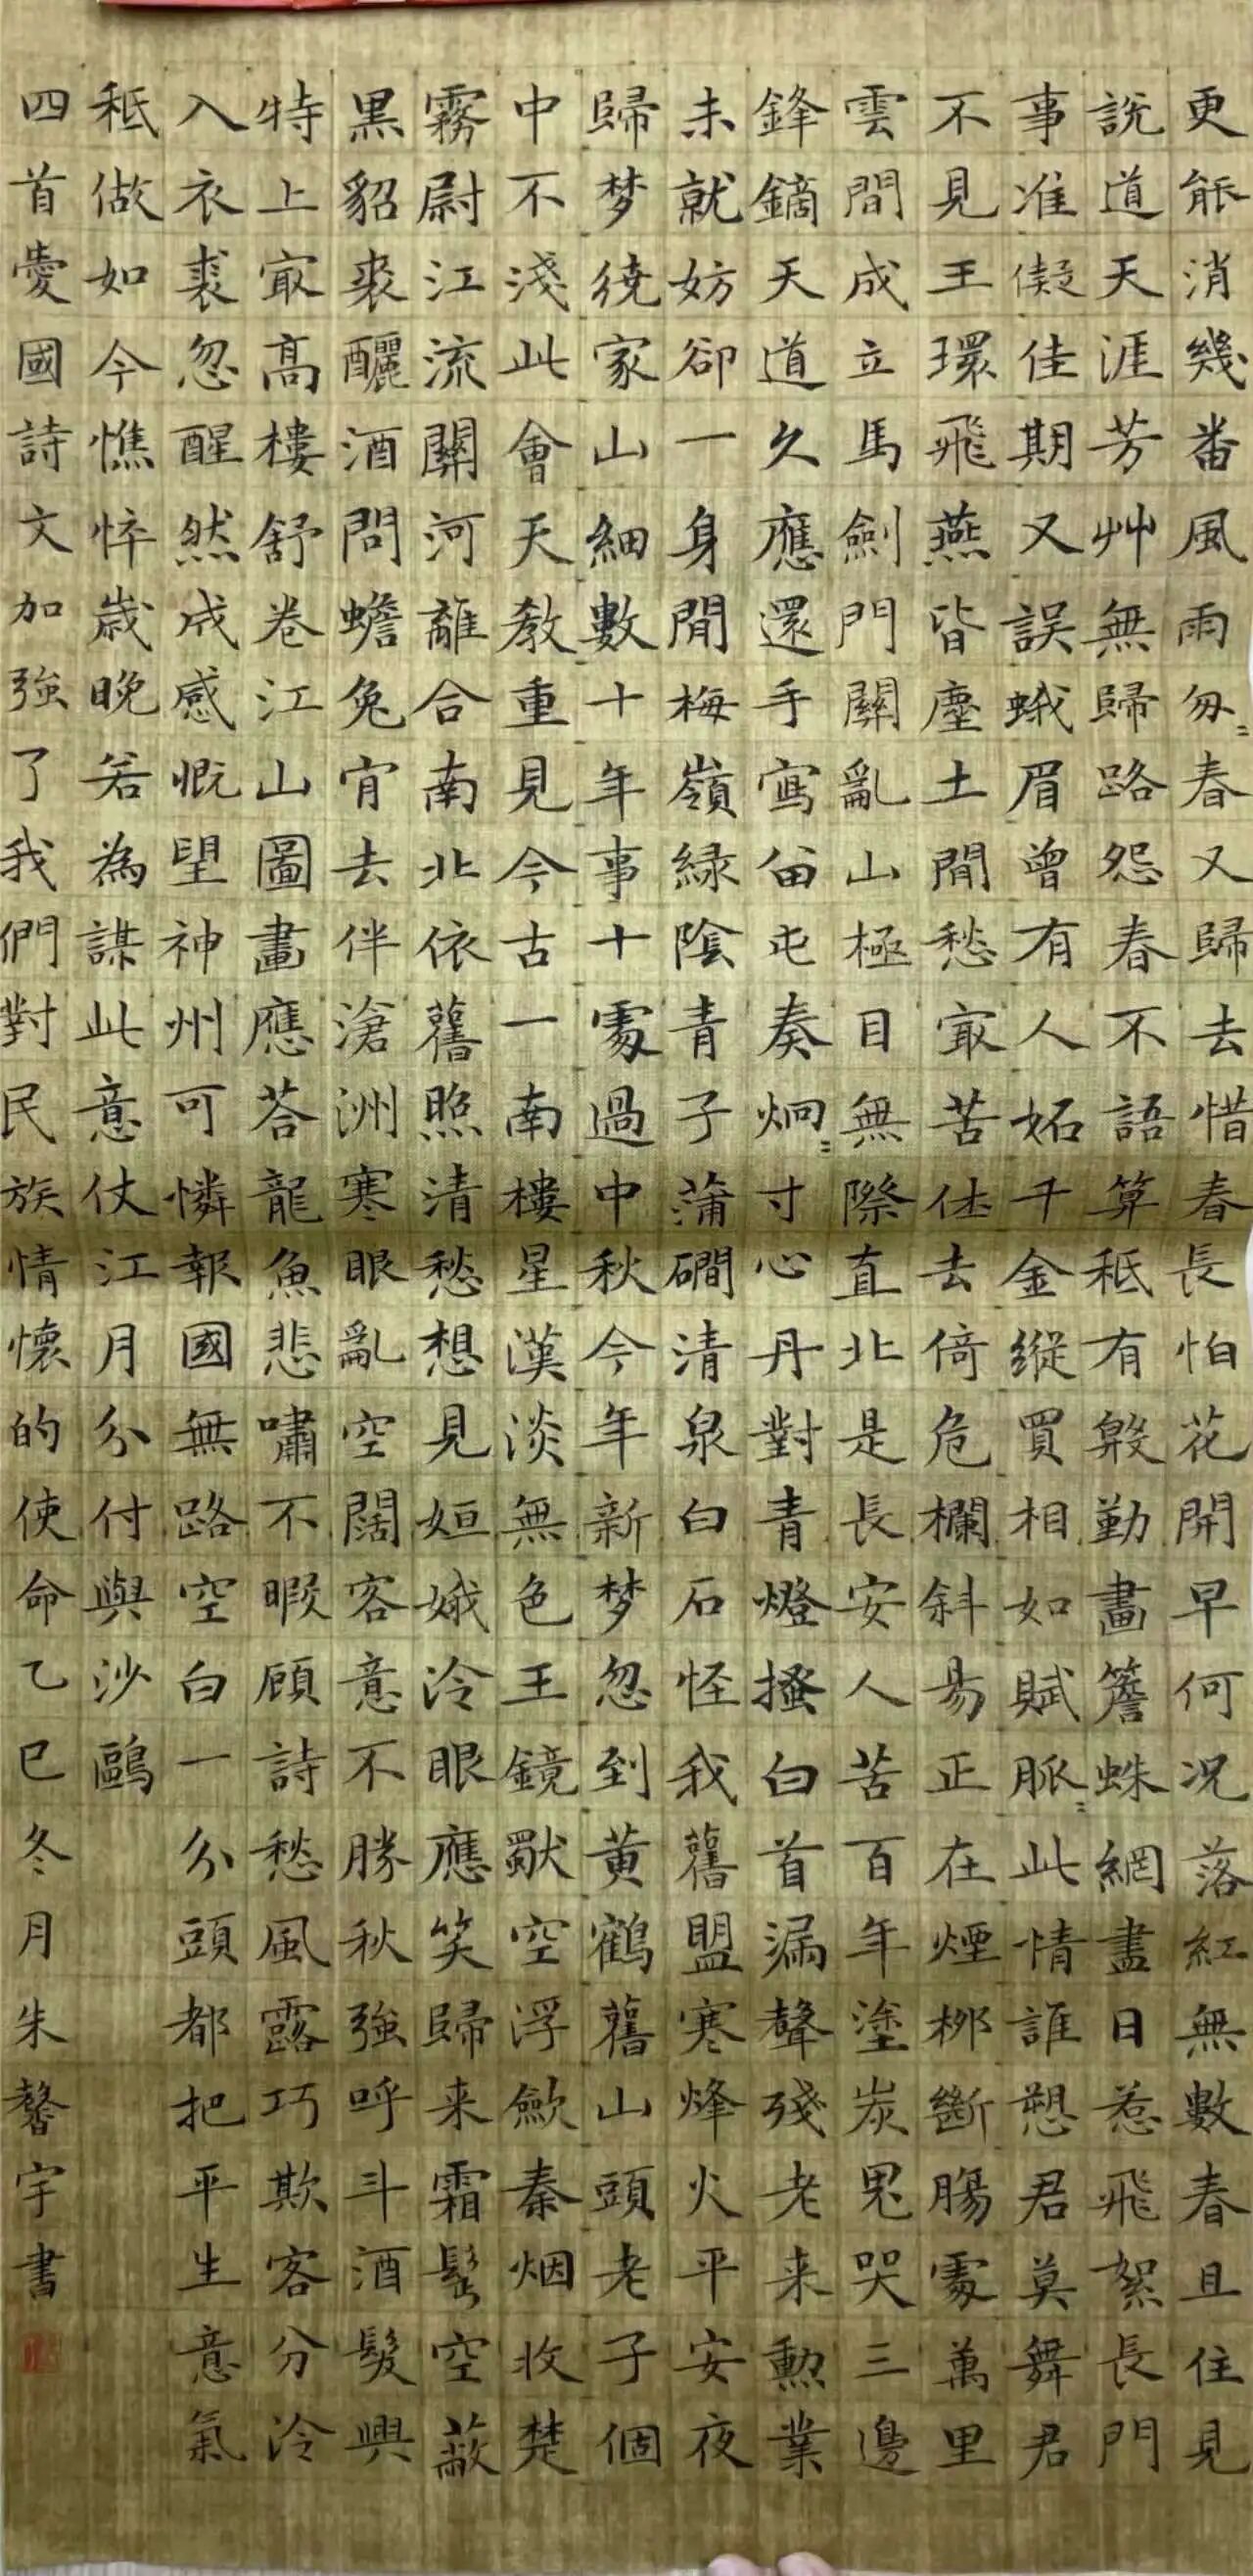 更能消幾番風雨匆〻春又歸去惜春長怕花開早何況落紅無數春且住見
說道天涯芳艸無歸路怨春不語算秖有殷勤畫簷蛛網盡日惹飛絮長門
事准儗佳期又誤蛾眉曾有人妬千金縱買相如賦脈〻此情誰愬君莫舞君
不見王環飛燕皆塵土閒愁冣苦休去倚危欄斜昜正在煙栁斷腸處萬里
雲間成立馬劍門關亂山極目無際直北是長安人苦百年塗炭鬼哭三邊
鋒鏑天道久應還手寫留屯奏炯〻寸心丹對青燈搔白首漏聲殘老来勳業
未就妨卻一身閒梅嶺緑陰青子蒲磵清泉白石怪我舊盟寒烽火平安夜
歸梦繞家山細數十年事十處過中秋今年新梦忽到黄鶴舊山頭老子個
中不淺此會天教重見今古一南樓星漢淡無色王鏡獸空浮歛秦烟收楚
霧尉江流關河離合南北依舊照清愁想見姮娥冷眼應笑歸来霜鬢空蔽
黒貂裘釃酒問蟾兔肯去伴滄洲寒眼亂空闊客意不勝秋強呼斗酒髮興
特上冣高樓舒卷江山圖畫應荅龍魚悲嘯不暇顧詩愁風露巧欺客分冷
入衣裘忽醒然成感慨望神州可憐報國無路空白一分頭都把平生意氣
秖做如今憔悴歳晚若為謀此意仗江月分付與沙鷗
四首愛國詩文加強了我們對民族情懷的使命乙巳冬月朱馨宇書